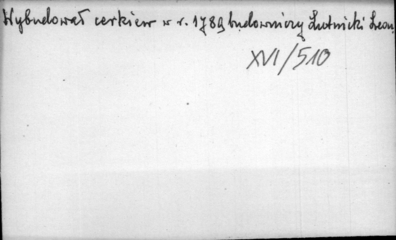 Wybudował cerkiew w r. 1789 budowniczy Lutnicki Leon
XVI/510